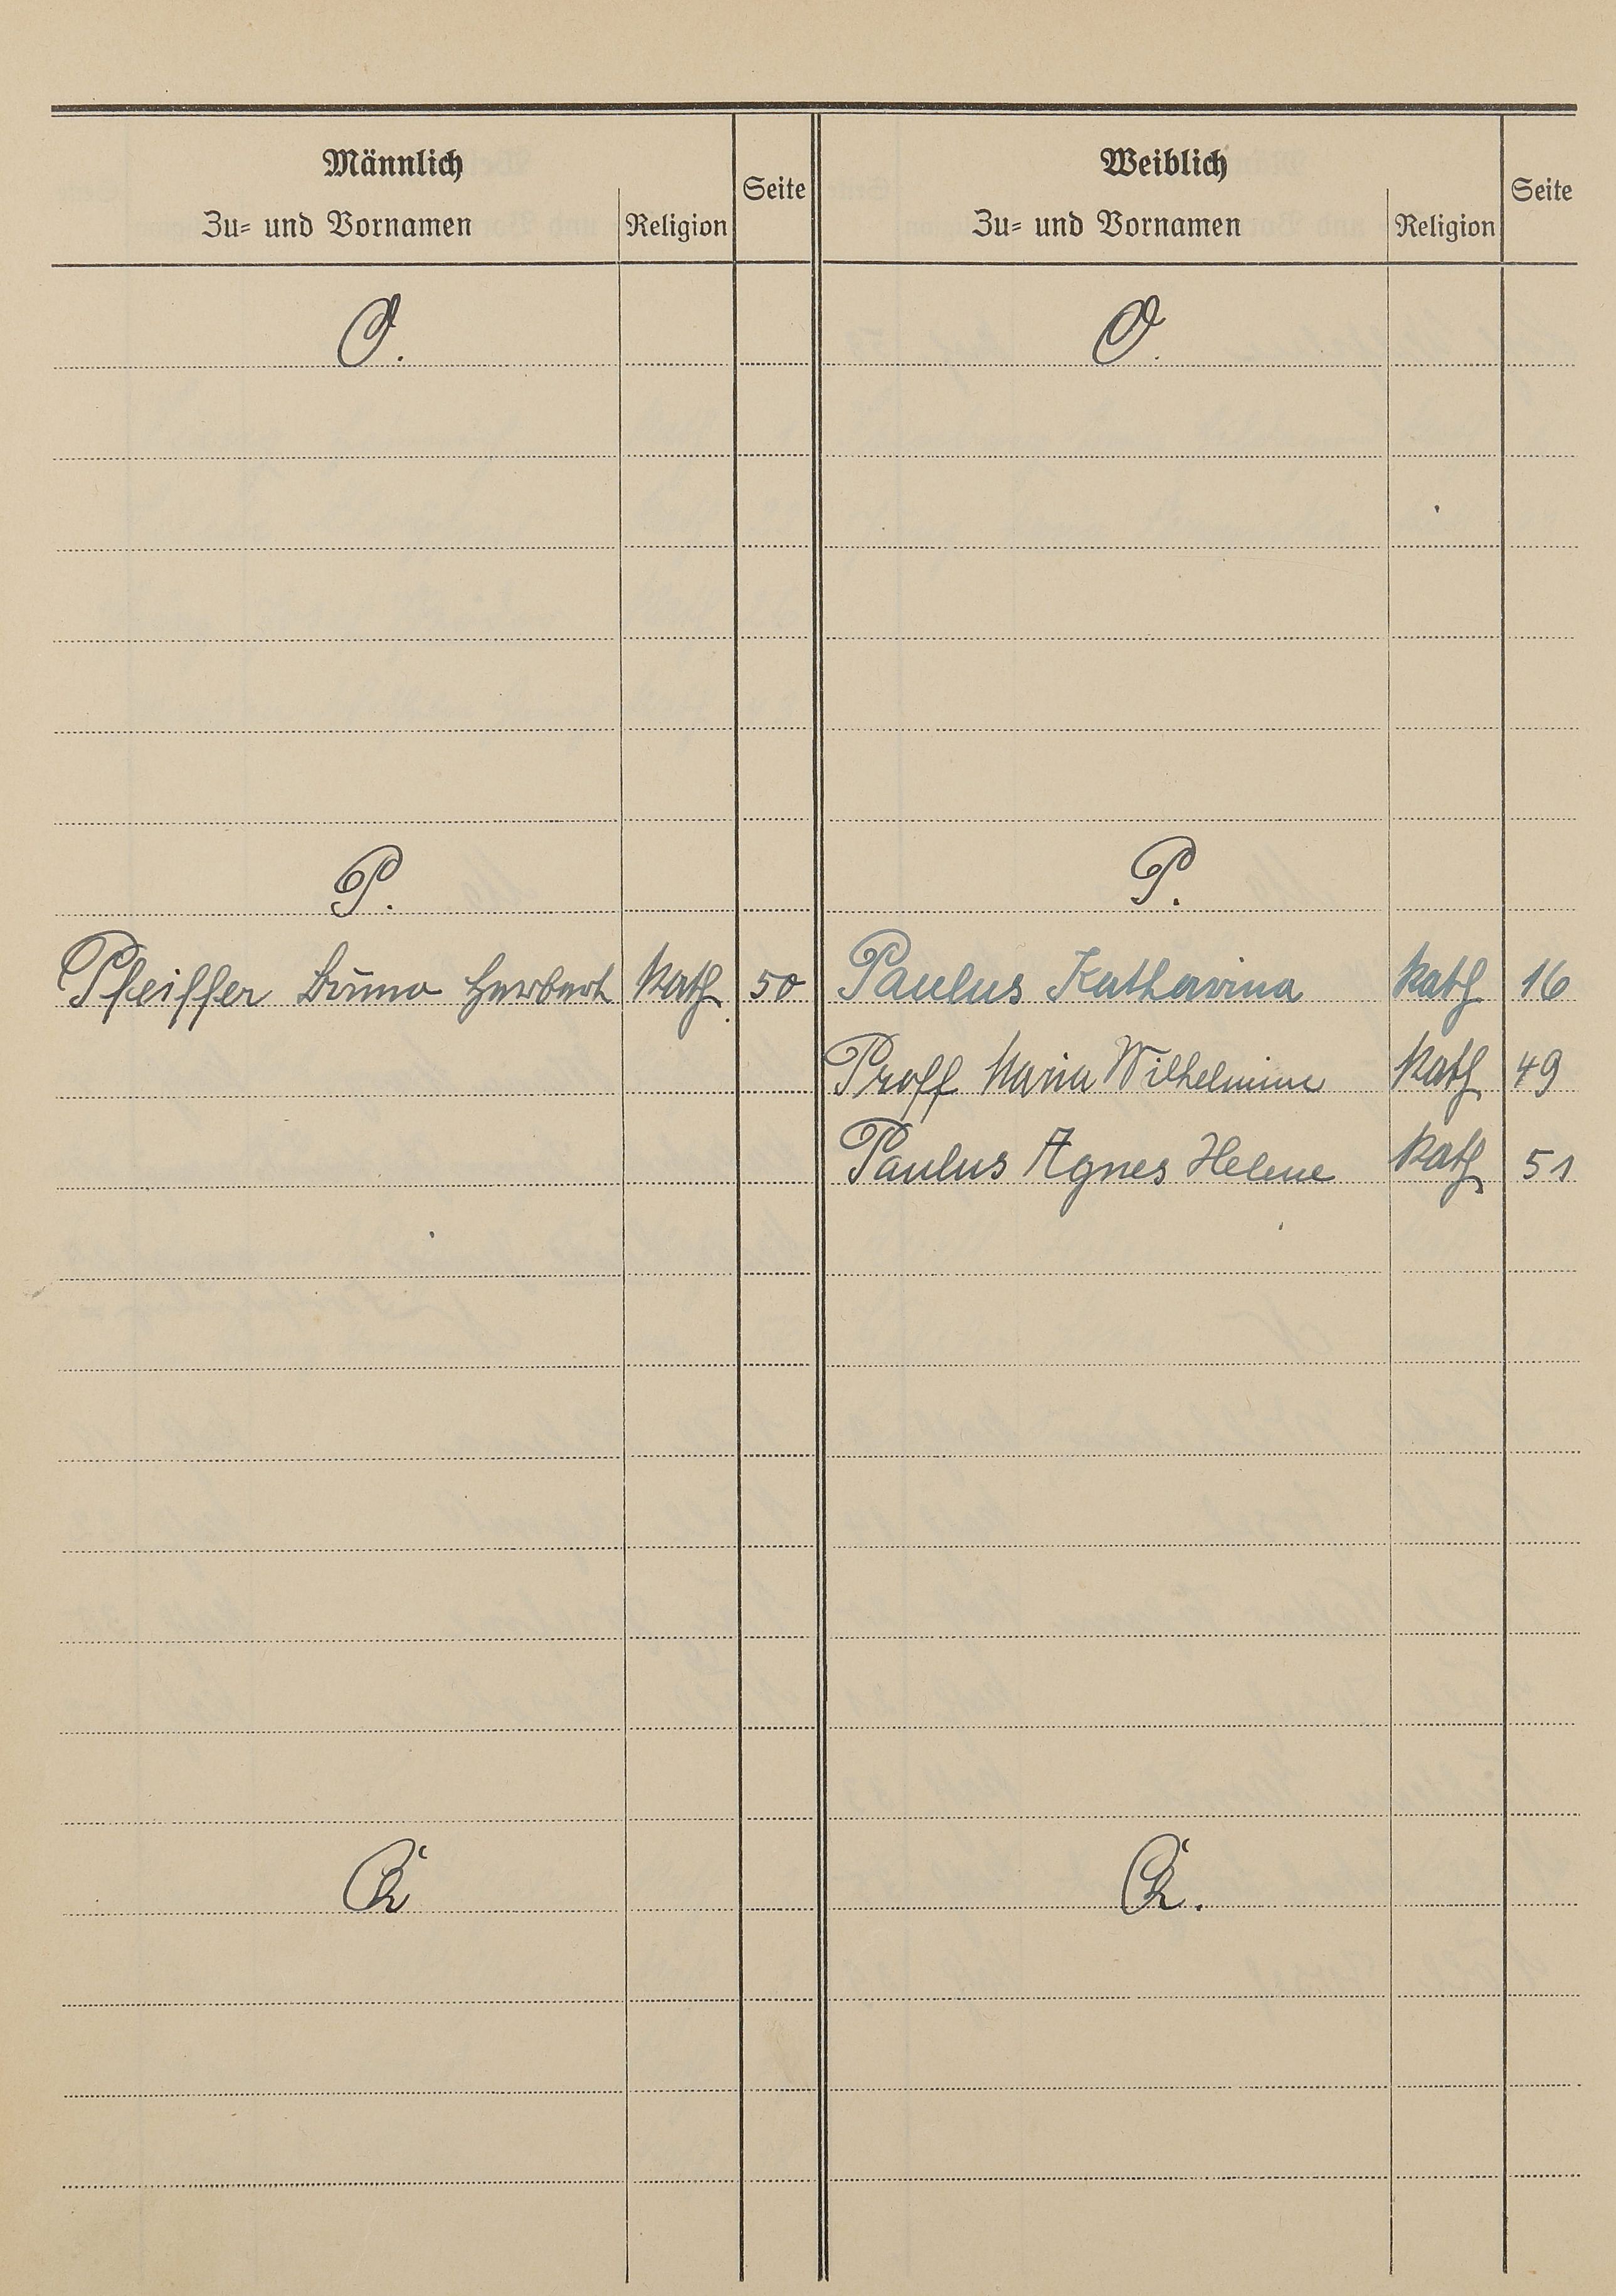 Männlich
Zu- und Vornamen Religion Seite
Weiblich
Zu- und Vornamen Religion Seite
O. O.
P. P.
Pfeiffer Bruno Herbert Kath 50 Paulus Katharina Kath 16
Proff Maria Wilhelmine Kath 49
Paulus Agnes Helene Kath 51
Q Q.